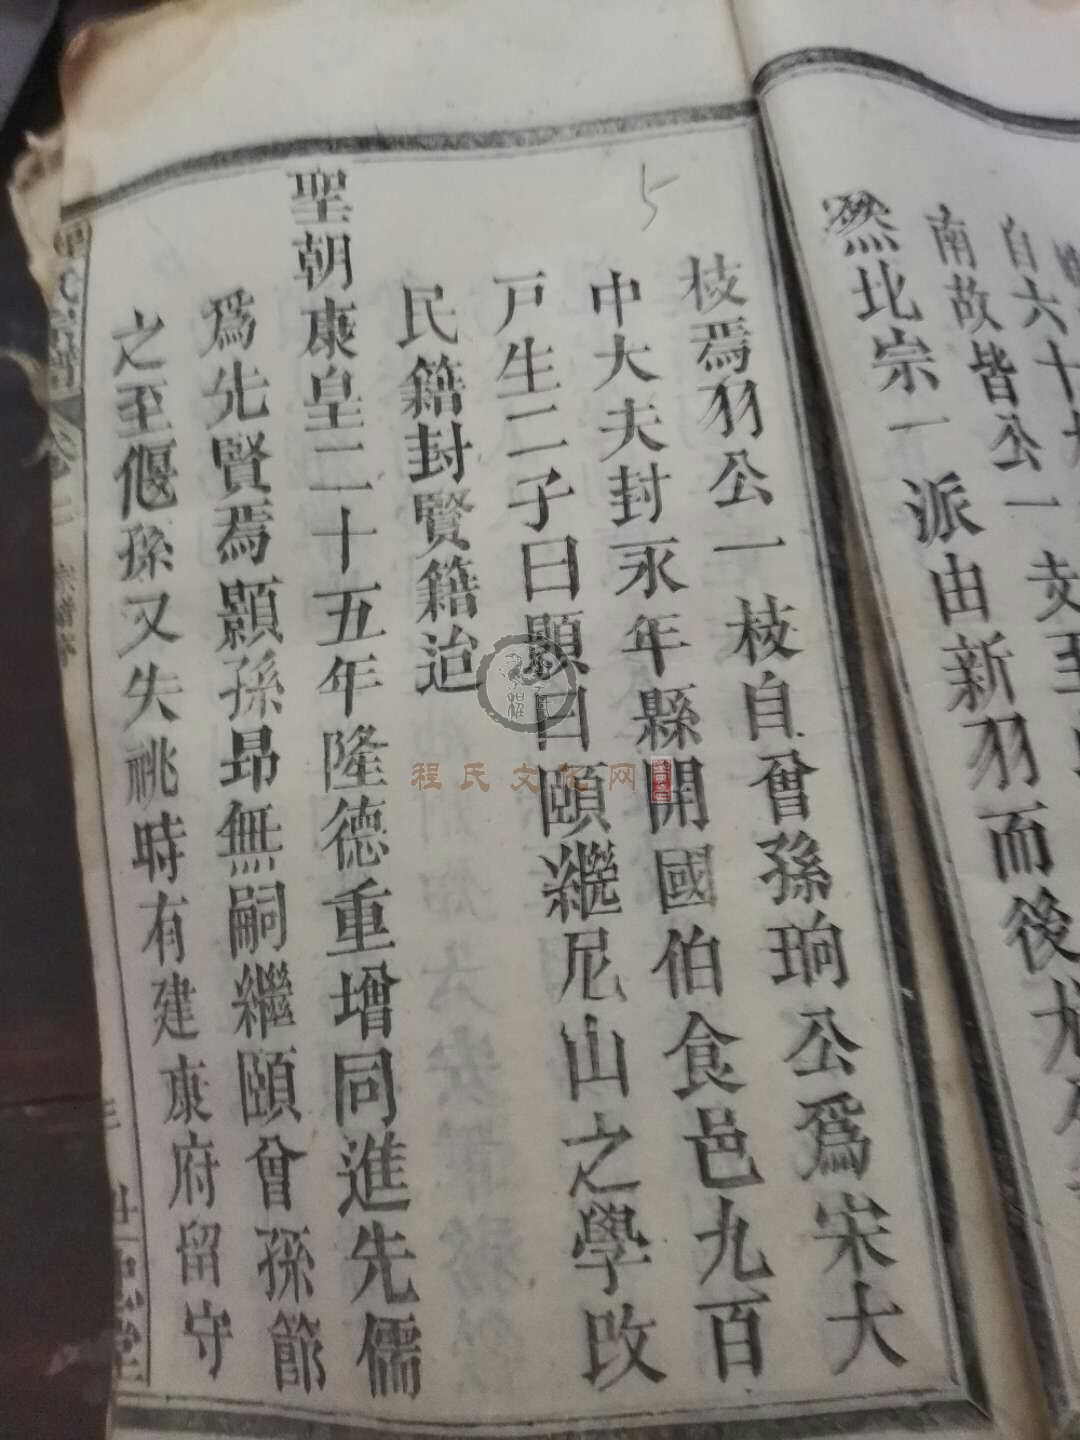 自六十
南故皆公一支至
然北宗一派由新羽而後
5
枝焉羽公一枝自曾孫珦公爲宋大
中大夫封永年縣開國伯食邑九百
戸生二子曰顥曰頤繼尼山之學改
民籍封賢籍迨
聖朝康皇二十五年隆德重增同進先儒
爲先賢焉顥孫昂無嗣繼頤曾孫節
之至偃孫又失祧時有建康府留守
程氏文化网